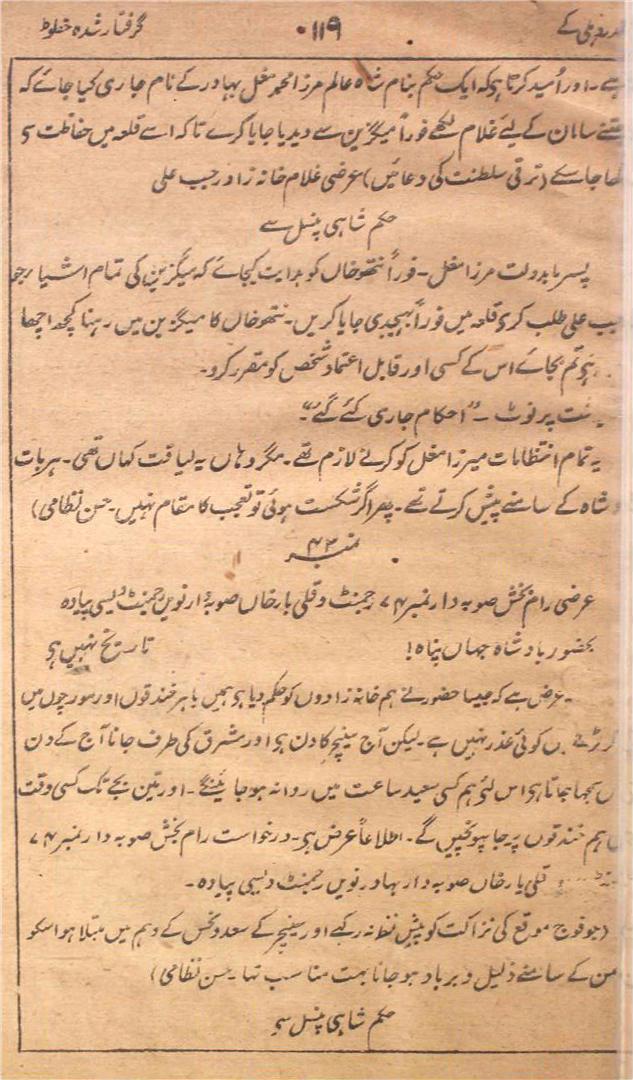 غدر دہلی کے ۱۱۹ گرفتار شدہ خطوط
ہے۔ اور اُمید کرتا ہوکہ ایک حکم بنام شاہ عالم مرزا محمد مغل بہادر کے نام جاری کیا جائے کہ
جتنے سامان کے لیئے غلام لکھے فوراً میگزین سے دیدیا جایا کرے تاکہ اسے قلعہ میں حفاظت سی
رکھا جاسکے (ترقی سلطنت کی دعائیں) عرضی غلام خانہ زاد رجب علی
حکم شاہی پنسل سے
پسر بادولت مرزا مغل۔ فوراً نتھو خاں کو ہدایت کیجائے کہ میگزین کی تمام اشیا رجو
علی طلب کری قلعہ میں فوراً بھیجدی جایا کریں۔ نتھو خاں کا میگزین میں رہنا کچھ اچھا
ہی تم بجائے اس کے کسی اور قابل اعتماد شخص کو مقرر کرو۔
پشت پر نوٹ ۔ "احکام جاری کئے گئے"۔
یہ تمام انتظامات میرزا مغل کو کرنے لازم تھے۔ مگر وہاں یہ لیاقت کہاں تھی۔ ہر بات
بادشاہ کے سامنے پیش کرتے تھے۔ پھر اگر شکست ہوئی تو تعجب کا مقام نہیں۔ حسن نظامی)
نمبر ۴۲
عرضی رام بخش صوبہ دار نمبر ۷۴ رجمنٹ و قلی یار خاں صوبہ دار نویں رجمنٹ دیسی پیادہ
بحضور بادشاہ جہاں پناہ! تاریخ نہیں ہی
عرض ہے کہ جیسا حضور نے ہم خانہ زادوں کو حکم دیا ہو ہمیں باہر خندقوں اور مورچوں میں
کوئی عذر نہیں ہے۔ لیکن آج سنیچر کا دن ہی اور مشرق کی طرف جانا آج کے دن
سمجھا جاتا ہی اس لئے ہم کسی سعید ساعت میں روانہ ہو جائینگے۔ اور تین بجے تک کسی وقت
ہم خندقوں پر جا پہونچیں گے۔ اطلاعاً عرض ہی۔ درخواست رام بخش صوبہ دار نمبر ۷۴
قلی یار خاں صوبہ دار بہادر نویں رجمنٹ دیسی پیادہ۔
(جو فوج موقع کی نزاکت کو پیش نظر نہ رکھے اور سنیچر کے سعد و نحس کے وہم میں مبتلا ہو اسکو
دشمن کے سامنے ذلیل و برباد ہو جانا بہت مناسب تھا۔ حسن نظامی)
حکم شاہی پنسل سے